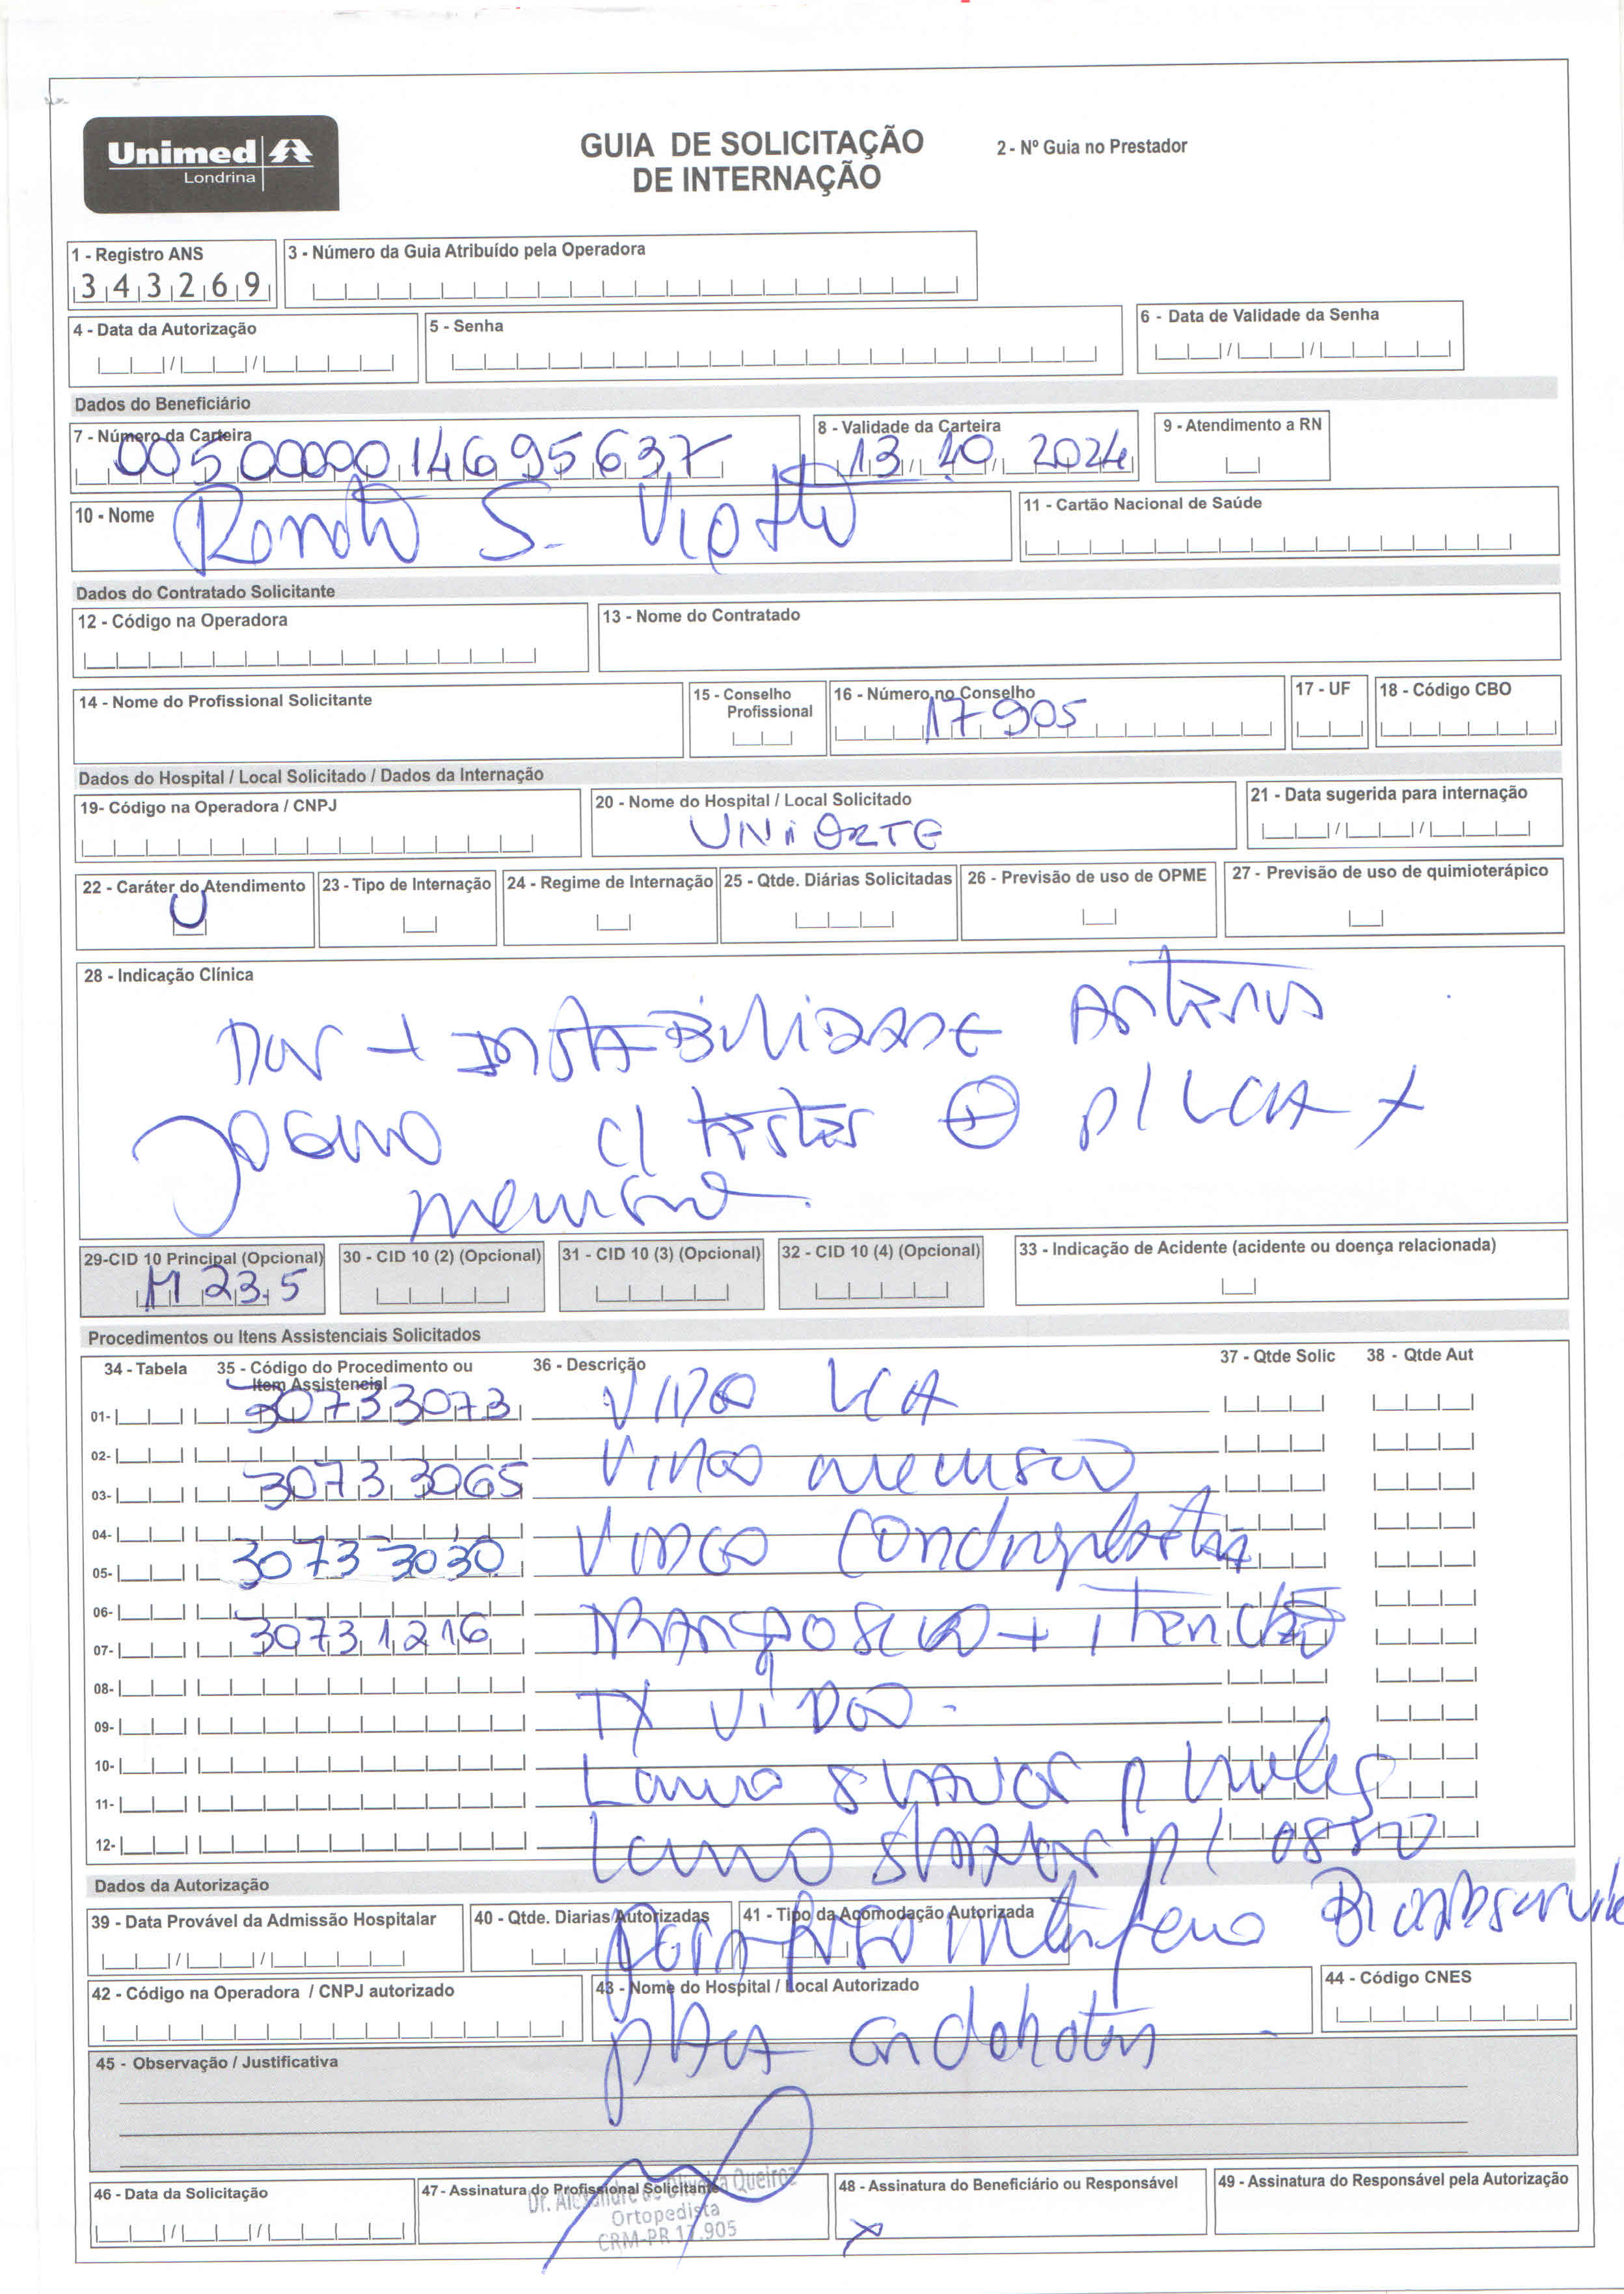 Unimed
Londrina
GUIA DE SOLICITAÇÃO
DE INTERNAÇÃO
2 - Nº Guia no Prestador
1 - Registro ANS
343269
3 - Número da Guia Atribuído pela Operadora
4 - Data da Autorização
5 - Senha
6 - Data de Validade da Senha
Dados do Beneficiário
7 - Número da Carteira
00500000014695637
8 - Validade da Carteira
13 10 2024
9 - Atendimento a RN
10 - Nome
S.
11 - Cartão Nacional de Saúde
Dados do Contratado Solicitante
12 - Código na Operadora
13 - Nome do Contratado
14 - Nome do Profissional Solicitante
15 - Conselho Profissional
16 - Número no Conselho
17905
17 - UF
18 - Código CBO
Dados do Hospital / Local Solicitado / Dados da Internação
19- Código na Operadora / CNPJ
20 - Nome do Hospital / Local Solicitado
UNIORTE
21 - Data sugerida para internação
22 - Caráter do Atendimento
U
23 - Tipo de Internação
24 - Regime de Internação
25 - Qtde. Diárias Solicitadas
26 - Previsão de uso de OPME
27 - Previsão de uso de quimioterápico
28 - Indicação Clínica
Dor + INSTABILIDADE
JOELHO c/ testes ⊕ p/ LCA +
menisco
29-CID 10 Principal (Opcional)
M 23.5
30 - CID 10 (2) (Opcional)
31 - CID 10 (3) (Opcional)
32 - CID 10 (4) (Opcional)
33 - Indicação de Acidente (acidente ou doença relacionada)
Procedimentos ou Itens Assistenciais Solicitados
34 - Tabela
35 - Código do Procedimento ou Item Assistencial
36 - Descrição
37 - Qtde Solic
38 - Qtde Aut
01- 30733073 VIDEO LCA
02-
03- 30733065 VIDEO menisco
04-
05- 30733030 VIDEO condroplastia
06-
07- 30731216
08-
09- TX VIDEO
10-
11- Lamina SHAVER p
12- Lamina SHAVER p/ osso
Dados da Autorização
39 - Data Provável da Admissão Hospitalar
40 - Qtde. Diarias Autorizadas
41 - Tipo da Acomodação Autorizada
42 - Código na Operadora / CNPJ autorizado
43 - Nome do Hospital / Local Autorizado
44 - Código CNES
45 - Observação / Justificativa
46 - Data da Solicitação
47 - Assinatura do Profissional Solicitante
Dr. Alexandre de Oliveira Queiroz
Ortopedista
CRM-PR 17.905
48 - Assinatura do Beneficiário ou Responsável
x
49 - Assinatura do Responsável pela Autorização